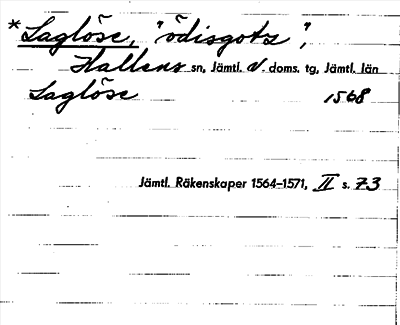 *Laglöse, "ödisgots",
Hallens sn, Jämtl. V. doms. tg, Jämtl. län
Laglöse 1568
Jämtl. Räkenskaper 1564–1571, II s. 73